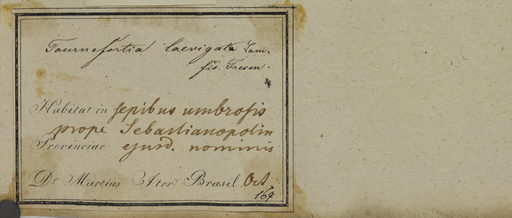 Tournefortia laevigata Lam.
fid. Fresen.
Habitat in sepibus umbrosis
prope Sebastianopolin
Provinciae ejusd. nominis
De Martius Iter Brasil. Oct